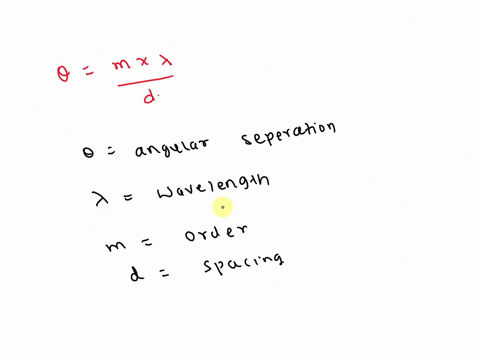 θ = m x λ / d.
θ = angular seperation
λ = wavelength
m = order
d = spacing